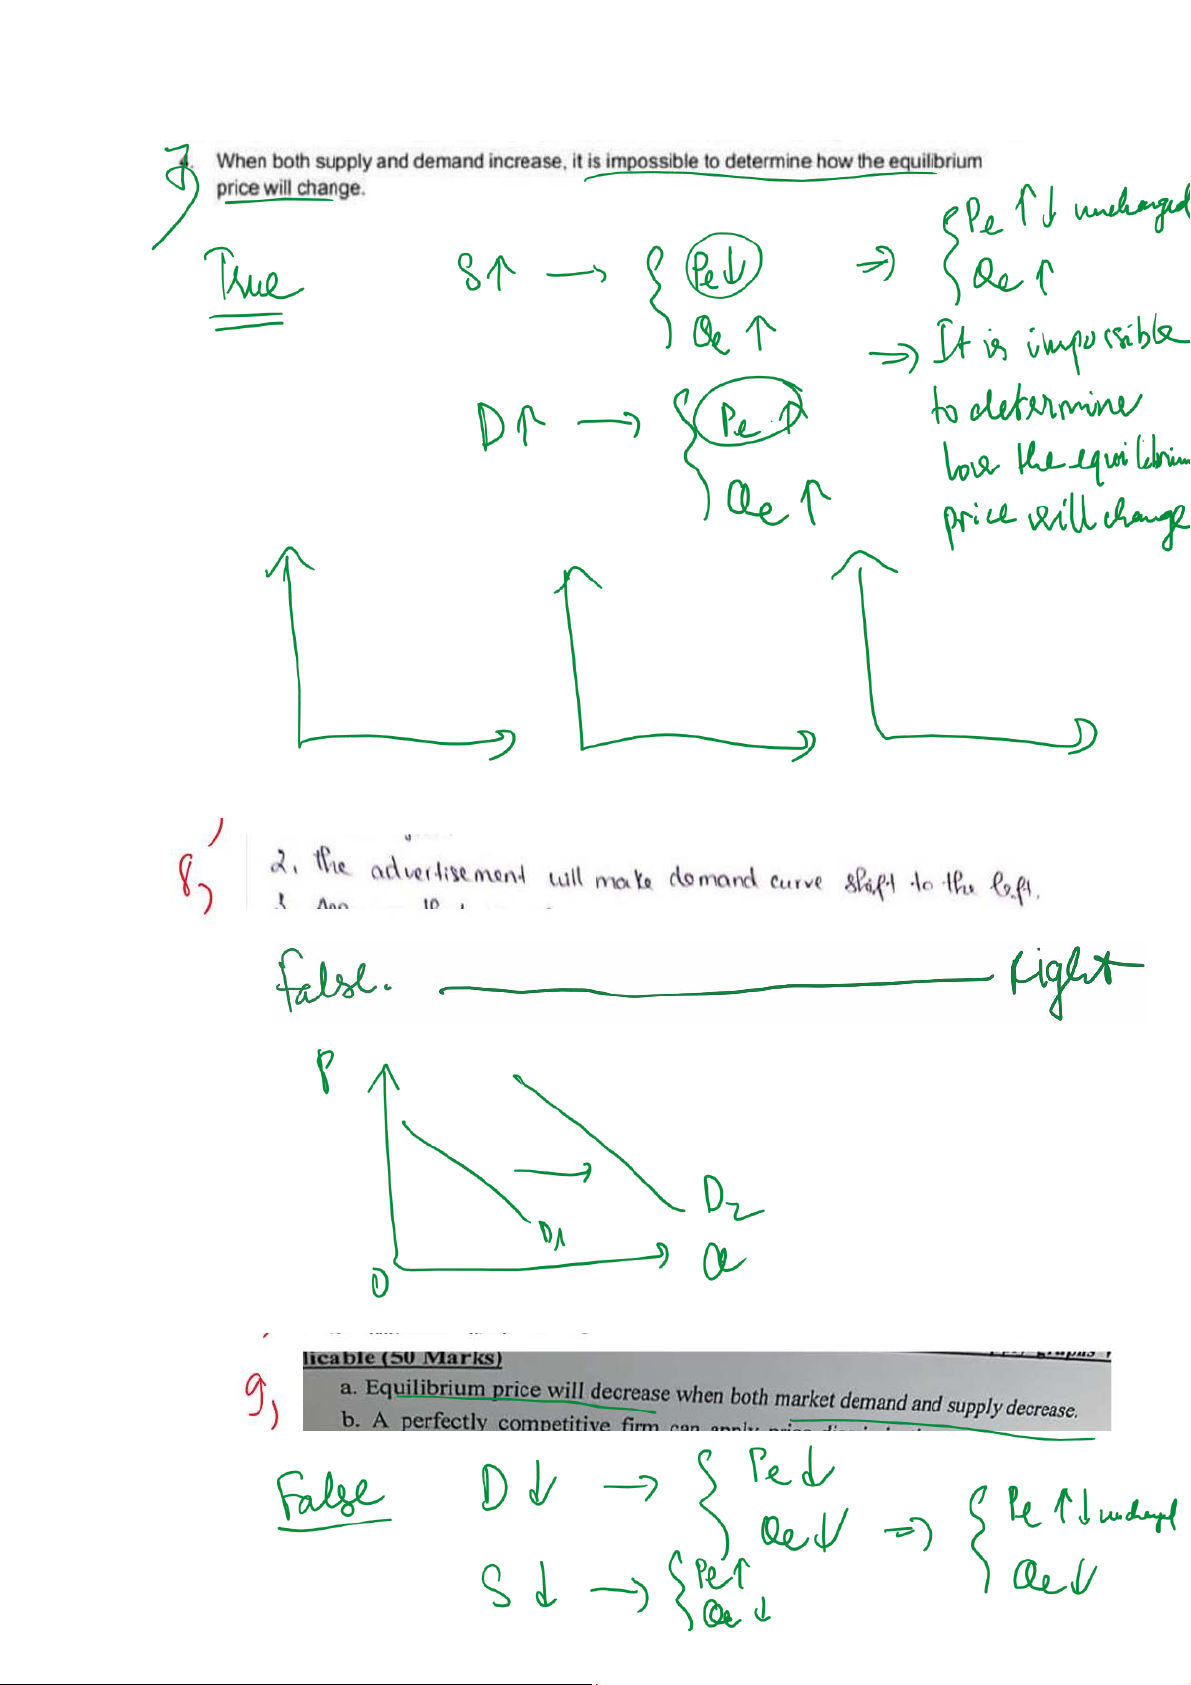 7,
4. When both supply and demand increase, it is impossible to determine how the equilibrium
price will change.
True
S↑ → { Pe↓
Qe ↑
⇒ { Pe ↑↓ unchanged
Qe ↑
D↑ → { Pe ↑
Qe ↑
⇒ It is impossible
to determine
how the equilibrium
price will change
8,
2. the advertisement will make demand curve shift to the left.
False. right
P
D1
D2
Q
O
9,
licable (50 Marks)
a. Equilibrium price will decrease when both market demand and supply decrease.
b. A perfectly competitive firm can apply
False
D ↓ → { Pe↓
Qe↓
S ↓ → { Pe↑
Qe ↓
⇒ { Pe ↑↓ unchanged
Qe↓